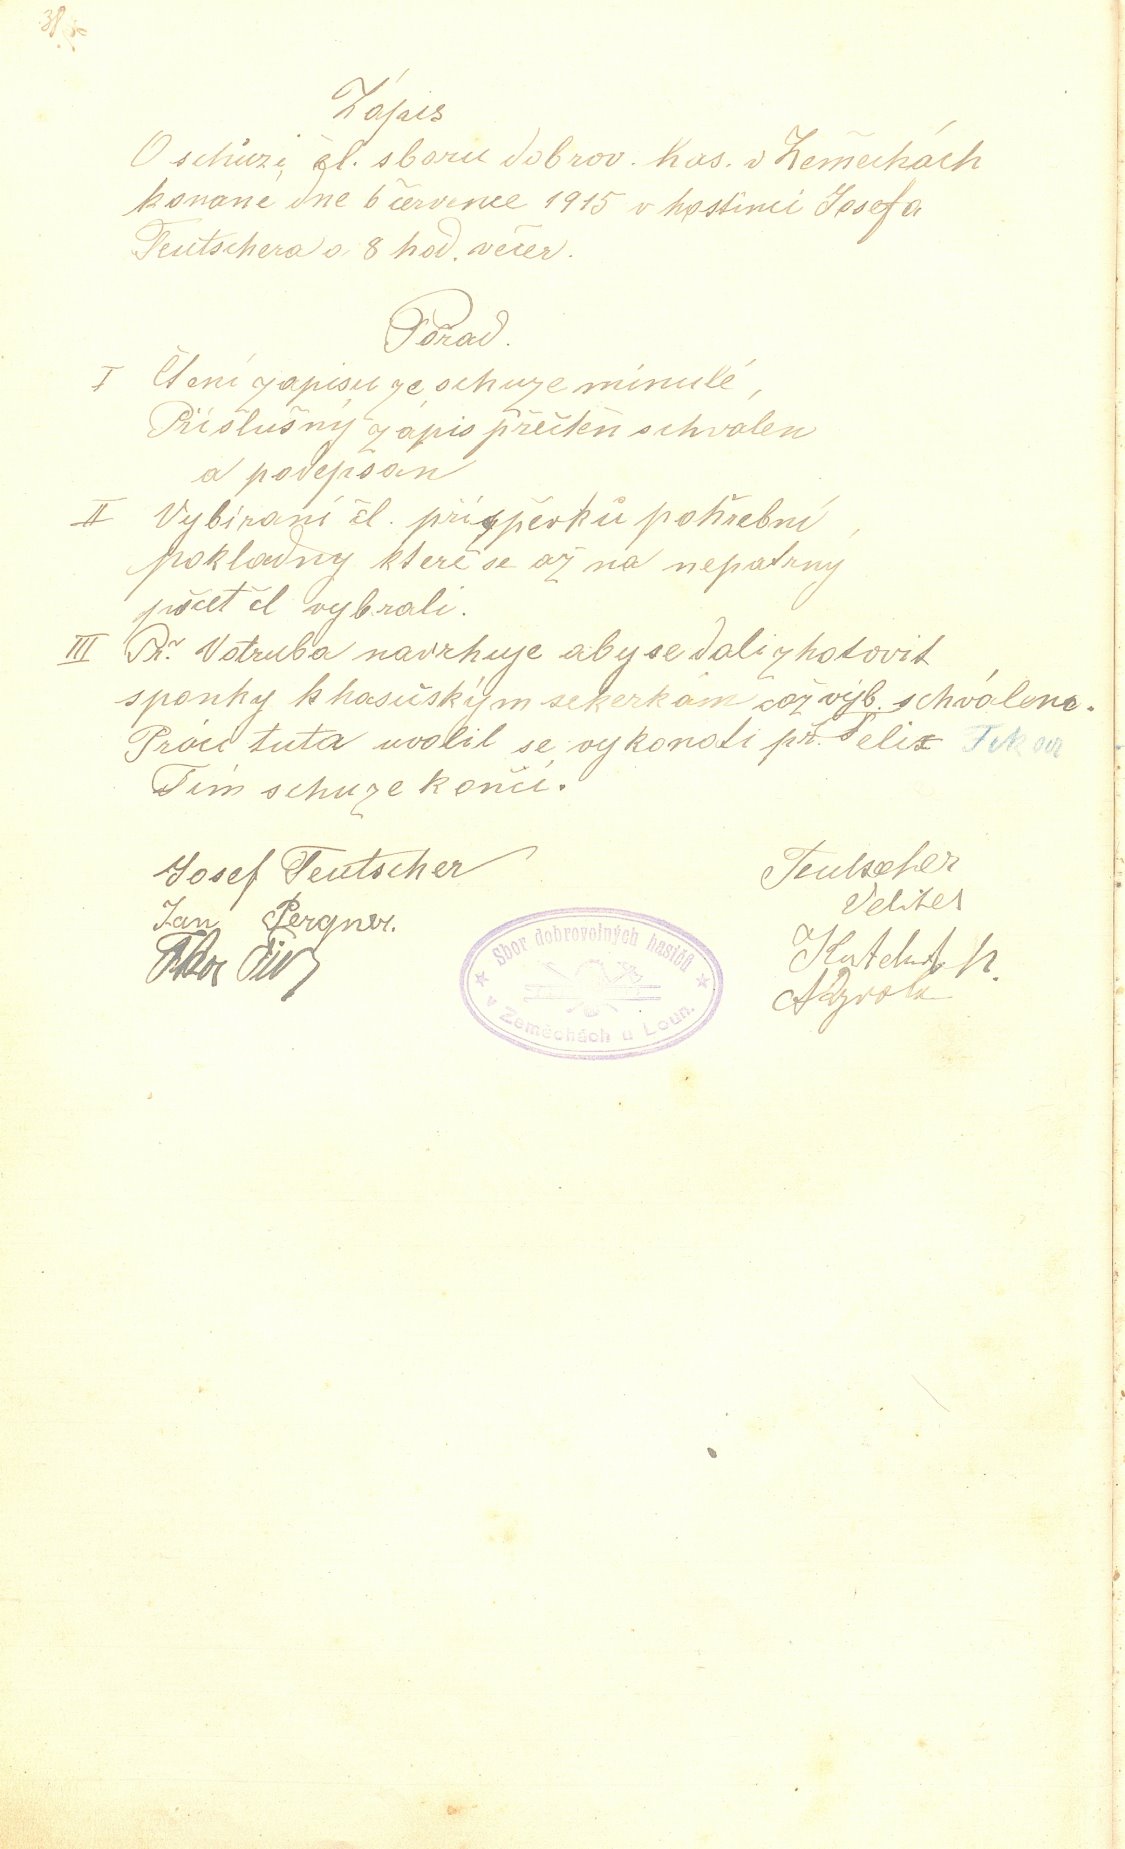 Zápis
O schůzi čl. sboru dobrov. has. v Zeměchách
konané dne 6 července 1915 v hostinci Josefa
Teutschera o 8 hod. večer.
Pořad.
I Čtení zapisu ze schuze minulé,
Příslušný zápis přečten schvalen
a podepsan
II Vybíraní čl. příspěvků pohřební
pokladny které se až na nepatrný
počet čl vybrali.
III Př. Votruba navrhuje aby se dali zhotovit
sponky k hasičským sekerkám což výb. schváleno.
Práci tuto uvolil se vykonati př. Felix
Tím schuze končí.
Josef Teutscher
Teutscher
Jan Pergner.
velitel
Sbor dobrovolných hasičů
v Zeměchách u Loun.